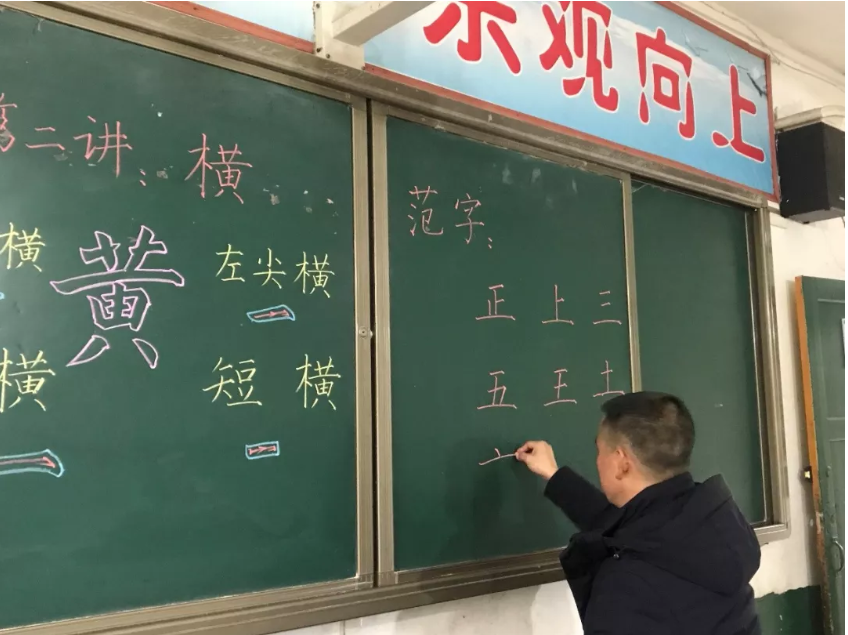 乐观向上
第二讲：横
横
黄
左尖横
横
短横
范字：
正上三
五王土